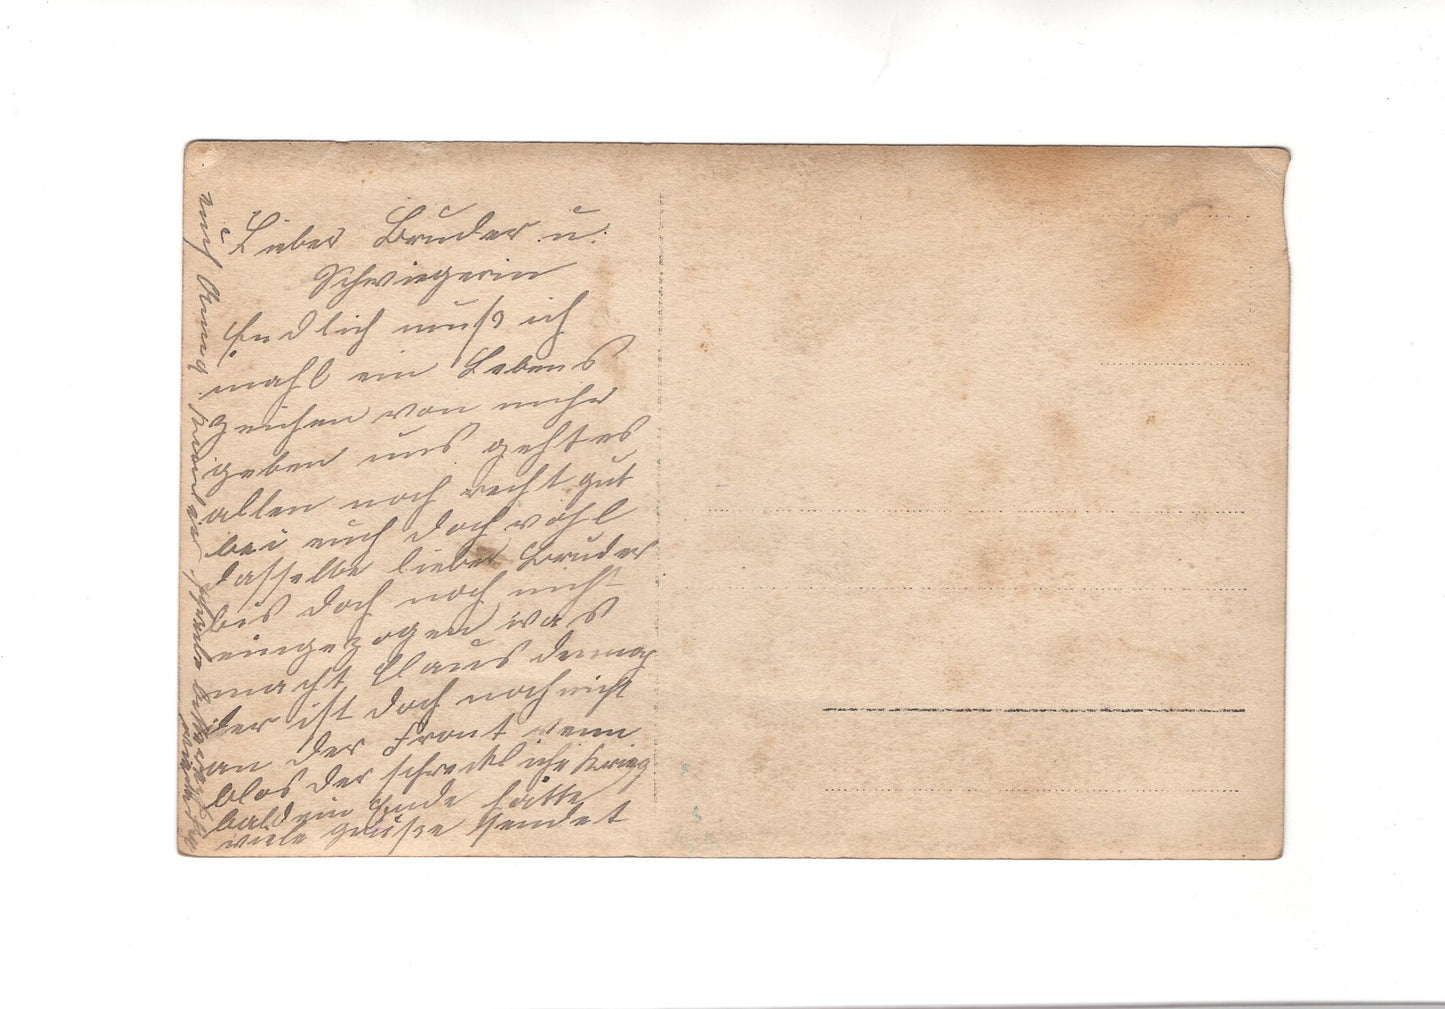 Lieber Bruder u.
Schwiegerin
Endlich muß ich
mahl ein Lebens
zeichen von mihr
geben uns geht es
allen noch recht gut
bei euch doch wohl
dasselbe lieber Bruder
bis doch noch nicht
eingezogen was
macht Claus denn
der ist doch noch nicht
an der Front wenn
blos der schreckliche Krieg
bald ein Ende hätte
viele grüße sendet
euch Anna